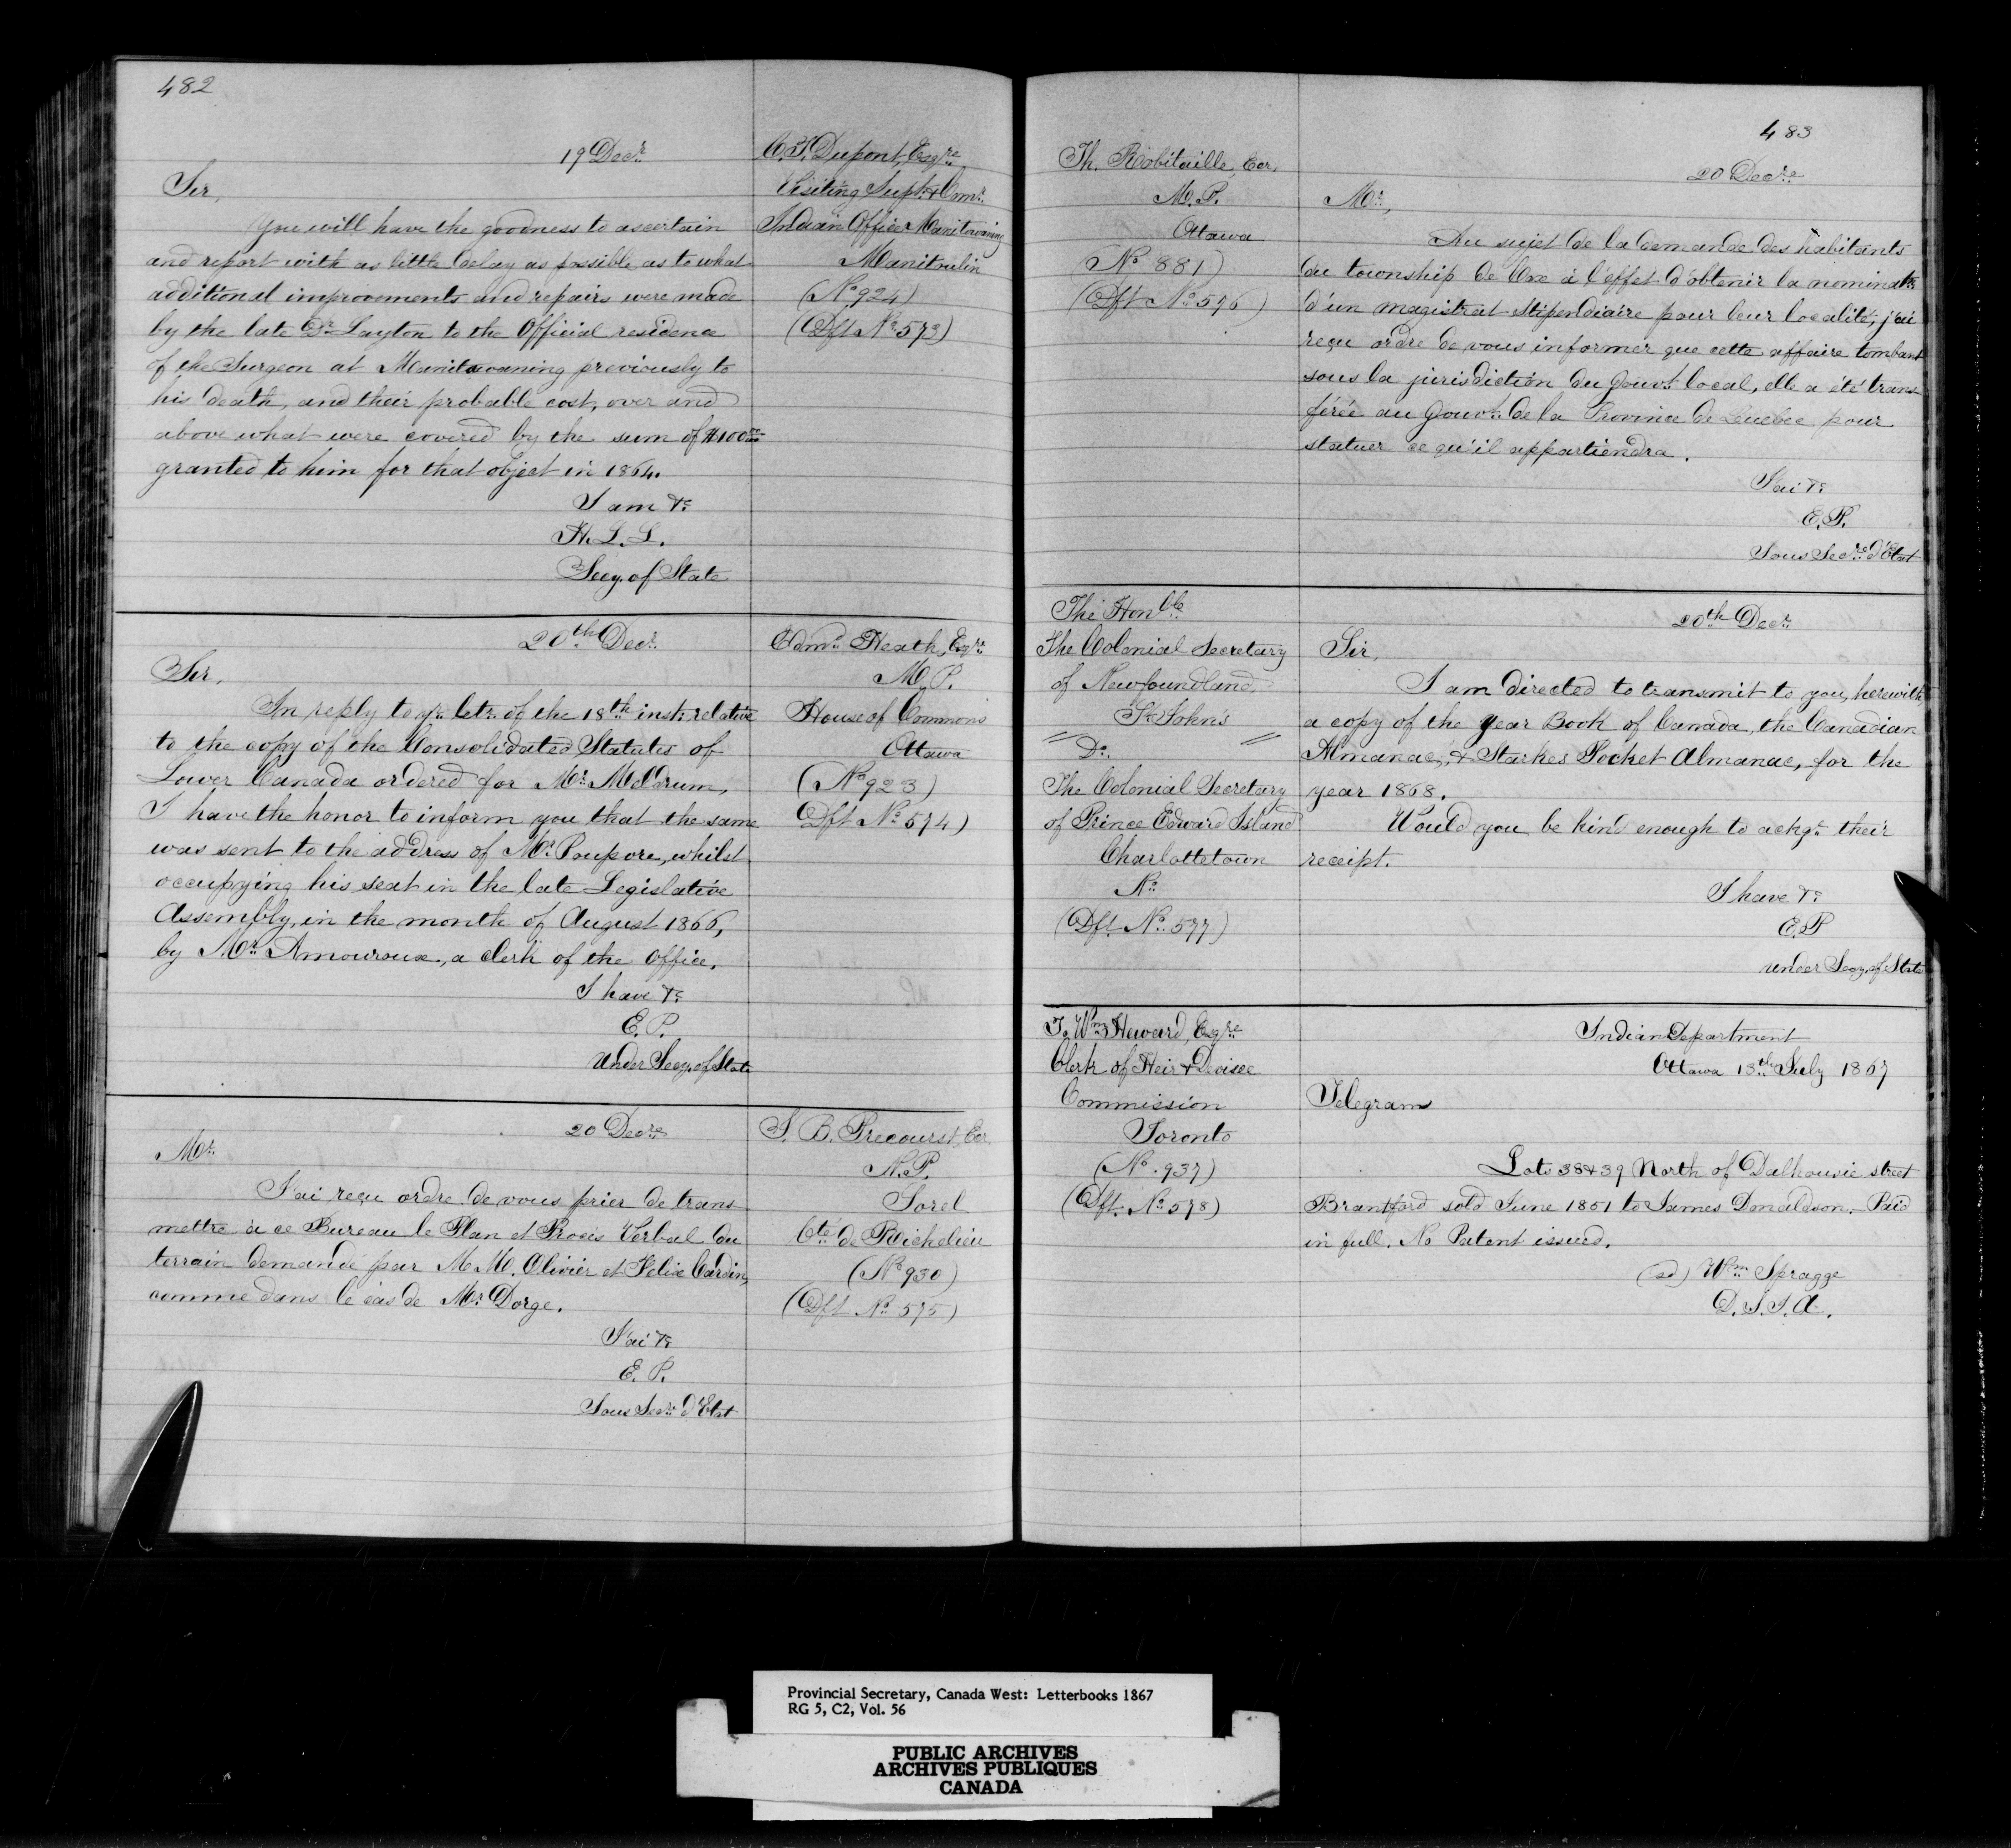 482
19 Decr.
C. T. Dupont, Esqre.
Visiting Supt. & Comr.
Indian Office Manitowaning
Manitoulin
(No. 924)
(Dft No. 573)
Sir,
You will have the goodness to ascertain
and report with as little delay as possible, as to what
additional improvements and repairs were made
by the late Dr. Layton to the Official residence
of the Surgeon at Manitowaning previously to
his death, and their probable cost, over and
above what were covered by the sum of $100
granted to him for that object in 1864.
I am &c
H. L. L.
Secy. of State
20th Decr.
Edmd. Heath, Esqre.
M. P.
House of Commons
Ottawa
(No. 923)
Dft No. 574)
Sir,
In reply to yr. letr. of the 18th inst: relative
to the copy of the Consolidated Statutes of
Lower Canada ordered for Mr. Meldrum,
I have the honor to inform you that the same
was sent to the address of Mr. Poupore, whilst
occupying his seat in the late Legislative
Assembly, in the month of August 1866,
by Mr. Amouroux, a Clerk of the Office.
I have &c
E. P.
Under Secy. of State
20 Decre.
J. B. Precourst, Ecr.
N. P.
Sorel
Cté. de Richelieu
(No. 930)
(Dft No. 575)
Mr.
J'ai reçu ordre de vous prier de trans
mettre à ce Bureau le Plan et Procès Verbal du
terrain demandé par M. M. Olivier et Félix Cardin,
comme dans le cas de Mr. Dorge.
J'ai &c
E. P.
Sous Secre. d'Etat
483
Th. Robitaille, Ecr.
M. P.
Ottawa
(No. 881)
(Dft No. 576)
20 Decre.
Mr.,
Au sujet de la demande des habitants
du township de Cox à l'effet d'obtenir la nominatn.
d'un magistrat stipendiaire pour leur localité, j'ai
reçu ordre de vous informer que cette affaire tombant
sous la jurisdiction du Gouvt. local, elle a été trans
férée au Gouvt. de la Province de Québec pour
statuer ce qu'il appartiendra.
J'ai &c
E. P.
Sous Secre. d'Etat
The Honble.
The Colonial Secretary
of Newfoundland
St. John's
" Do. "
The Colonial Secretary
of Prince Edward Island
Charlottetown
No.
(Dft. No. 577)
20th Decr.
Sir,
I am directed to transmit to you, herewith
a copy of the Year Book of Canada, the Canadian
Almanac, & Starkes Pocket Almanac, for the
year 1868.
Would you be kind enough to ackge. their
receipt.
I have &c
E. P
Under Secy. of State
J. Wm. Heward, Esqre.
Clerk of Heir & Devisee
Commission
Toronto
(No. 937)
(Dft. No. 578)
Indian Department
Ottawa 18th July 1867
Telegram
Lots 38 & 39 North of Dalhousie street
Brantford sold June 1851 to James Donaldson. Paid
in full. No Patent issued.
(sd) Wm. Spragge
D. S. I. A.
Provincial Secretary, Canada West: Letterbooks 1867
RG 5, C2, Vol. 56
PUBLIC ARCHIVES
ARCHIVES PUBLIQUES
CANADA